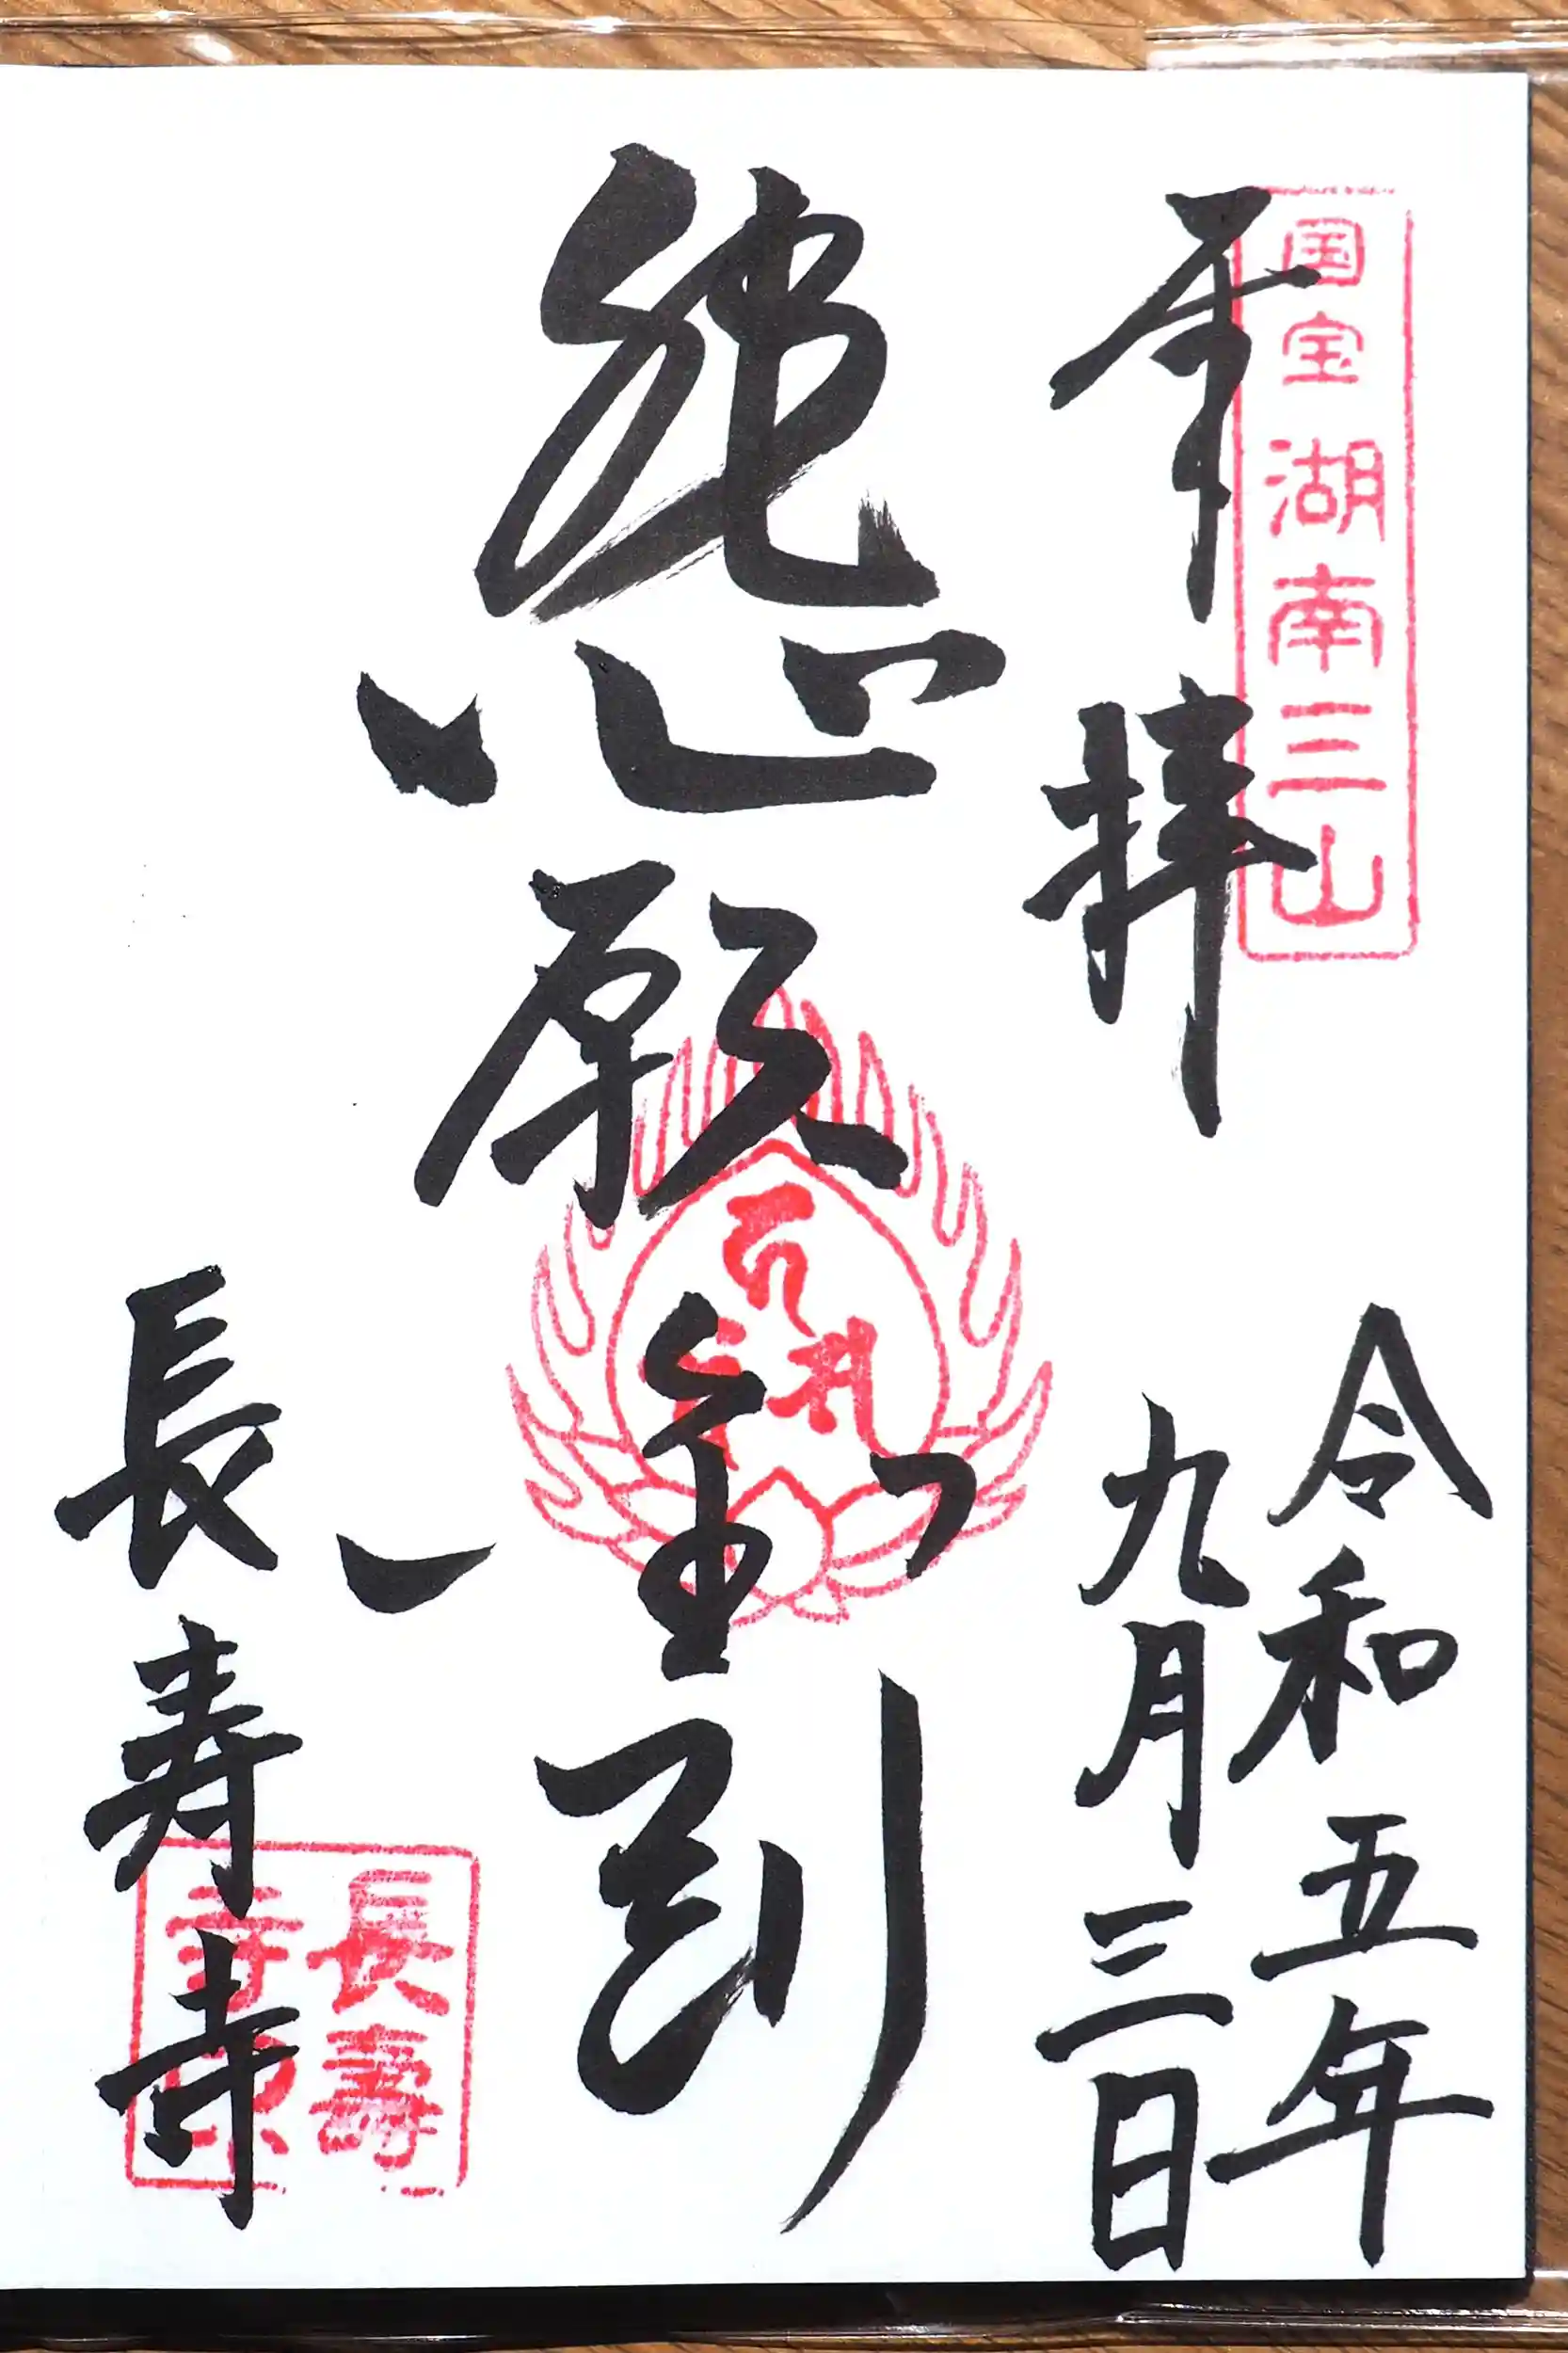 国宝湖南三山
奉拝
令和五年
九月三日
悲願金剛
長寿寺
長壽
寺印